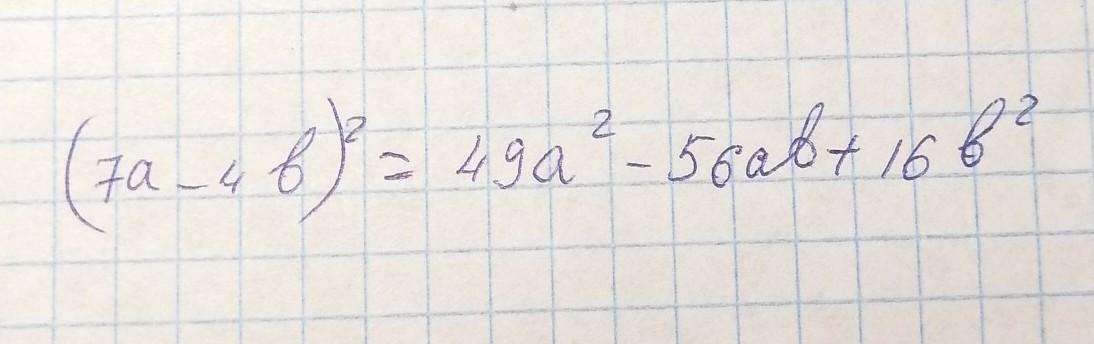 (7a - 4b)² = 49a² - 56ab + 16b²